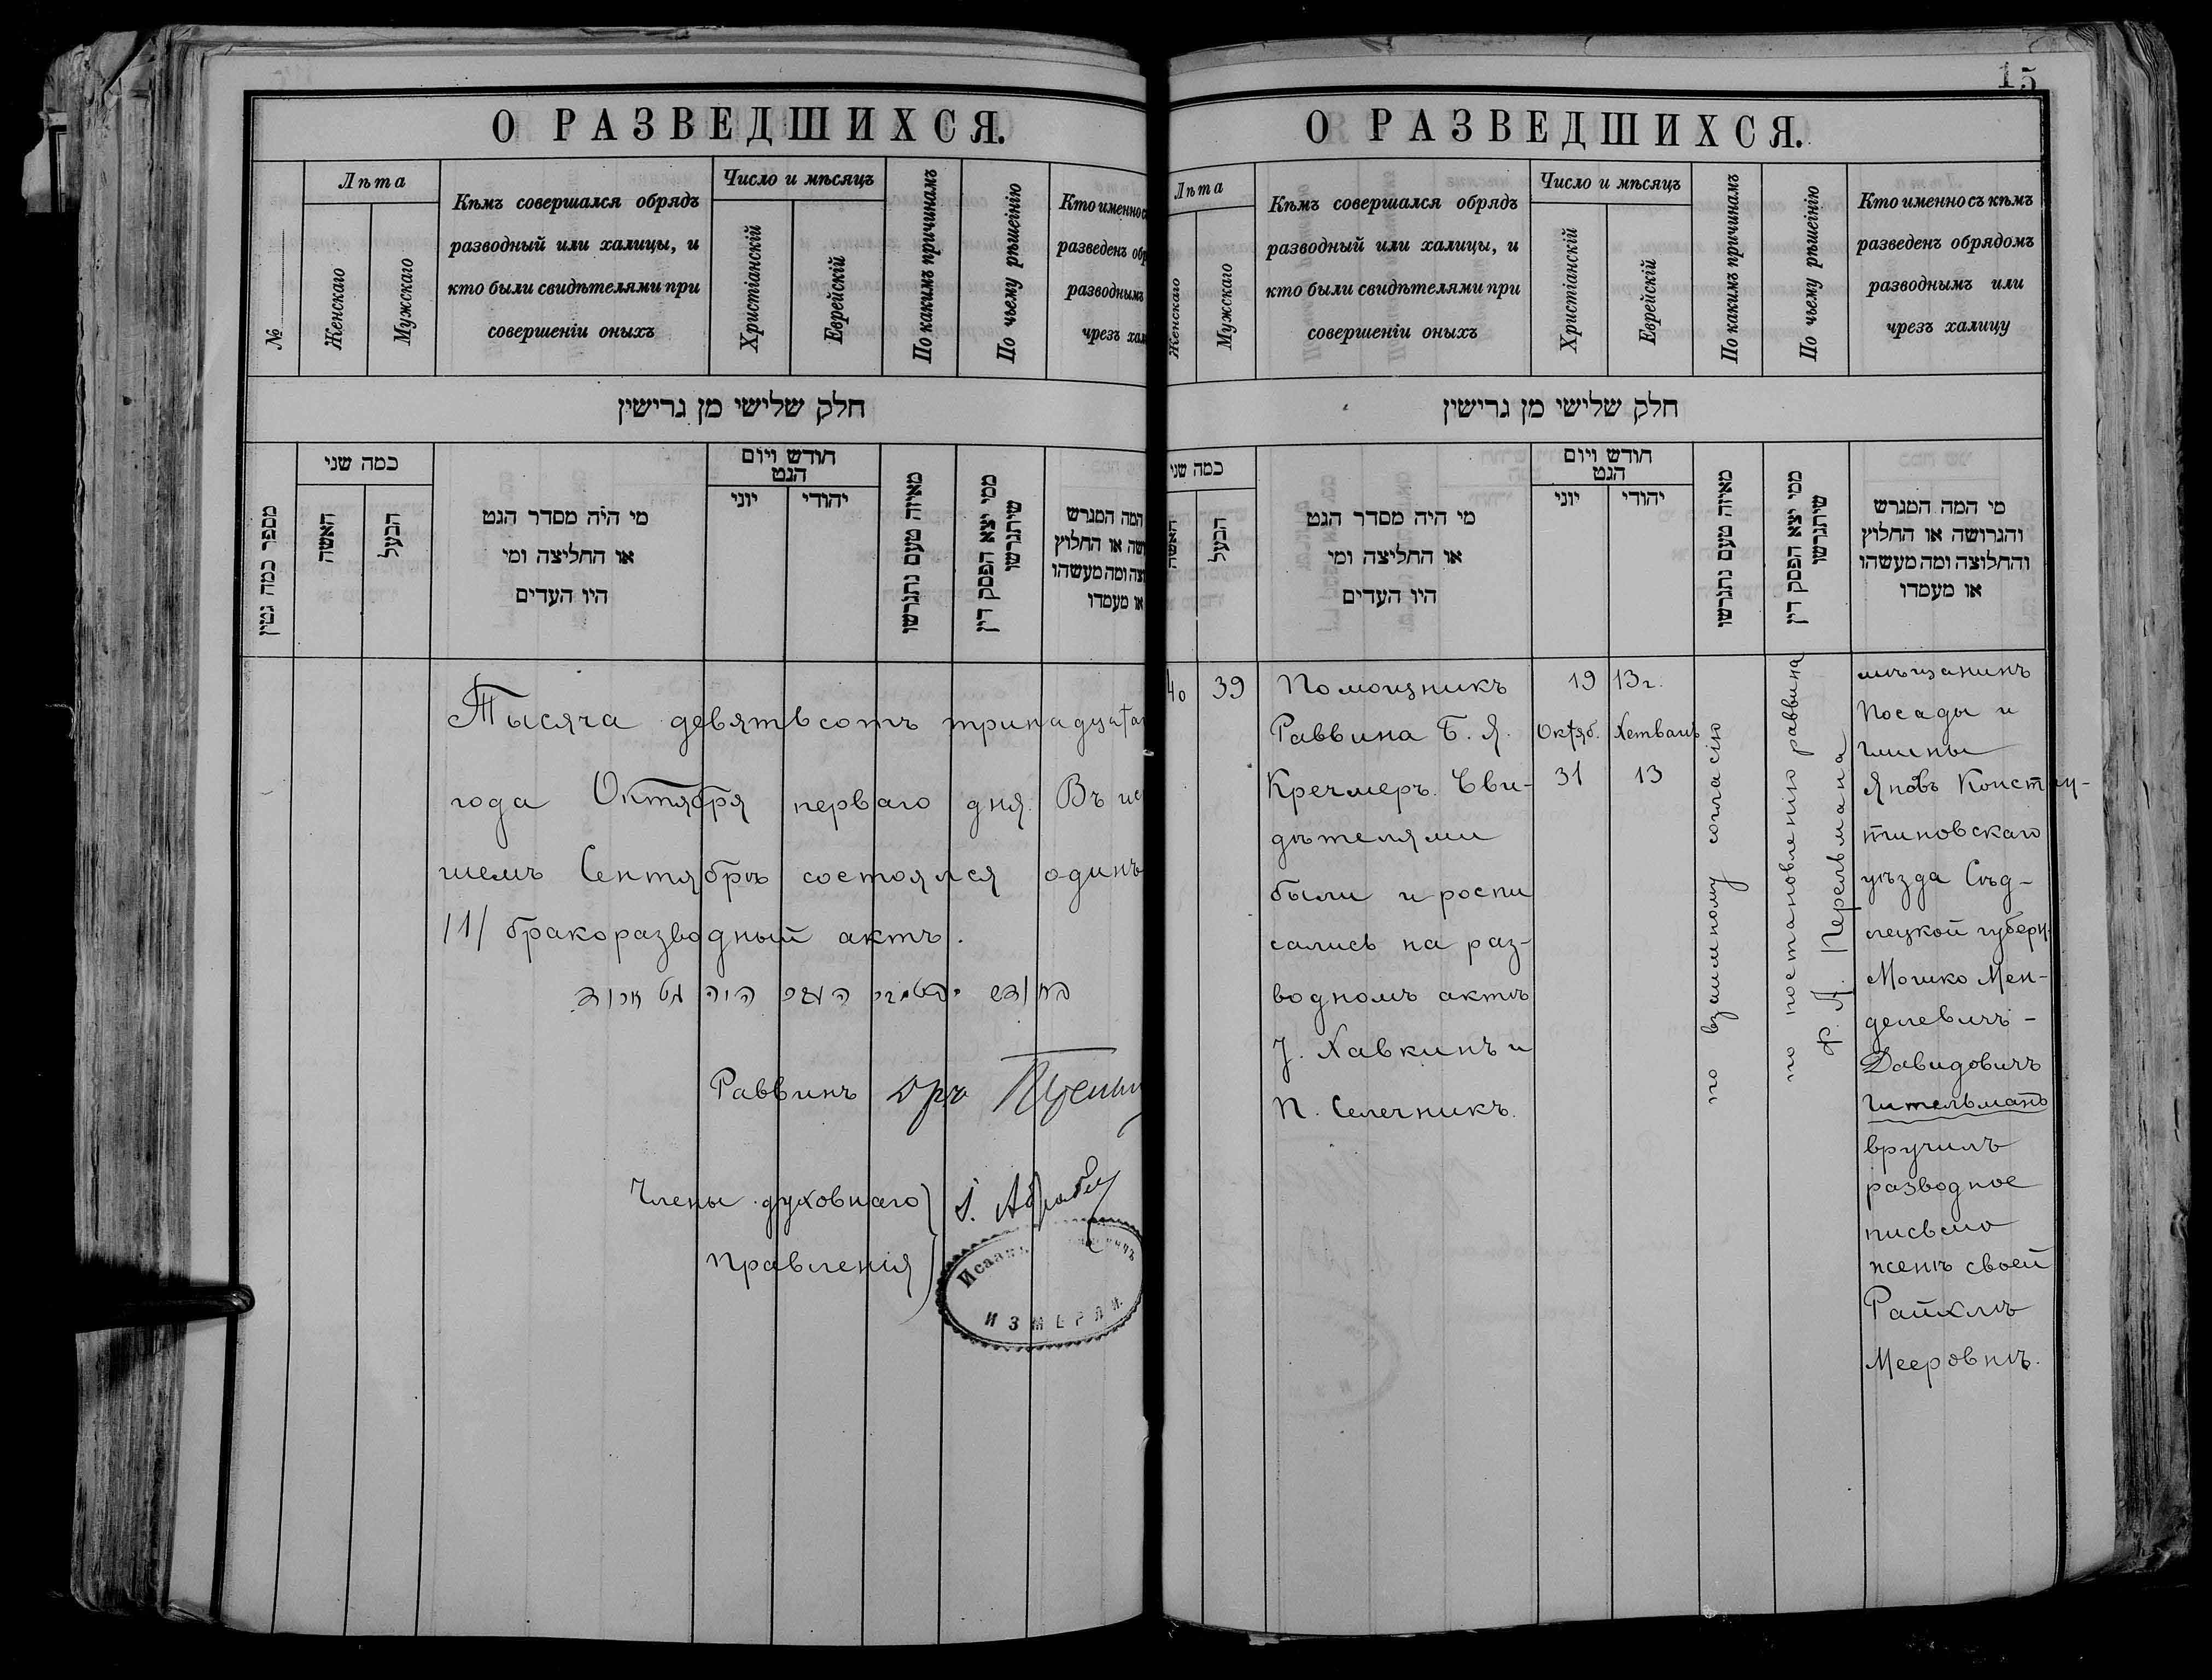 15
О РАЗВЕДШИХСЯ.
№
Лѣта
Женскаго
Мужскаго
Кѣмъ совершался обрядъ
разводный или халицы, и
кто были свидѣтелями при
совершеніи оныхъ
Число и мѣсяцъ
Христіанскій
Еврейскій
По какимъ причинамъ
По чьему рѣшеінію
Кто именно
разведенъ
разводнымъ
чрезъ
חלק שלישי מן גרישין
מספר כמה גטין
כמה שני
האשה
הבעל
מי היה מסדר הגט
או החליצה ומי
היו העדים
חודש ויום
הגט
יוני
יהודי
מאיזה טעם נתגרשו
ממי יצא הפסק דין
שיתגרשו
המה המגרש
או החלוץ
ומה מעשהו
או מעמדו
Тысяча девятьсотъ
года Октября перваго дня. Въ
шемъ Сентябрѣ состоялся одинъ
/1/ бракоразводный актъ.
היה גט
Раввинъ
Члены духовнаго
Правленія
И З М Е Р Л И.
О РАЗВЕДШИХСЯ.
Лѣта
Женскаго
Мужскаго
Кѣмъ совершался обрядъ
разводный или халицы, и
кто были свидѣтелями при
совершеніи оныхъ
Число и мѣсяцъ
Христіанскій
Еврейскій
По какимъ причинамъ
По чьему рѣшеінію
Кто именно съ кѣмъ
разведенъ обрядомъ
разводнымъ или
чрезъ халицу
חלק שלישי מן גרישין
כמה שני
האשה
הבעל
מי היה מסדר הגט
או החליצה ומי
היו העדים
חודש ויום
הגט
יוני
יהודי
מאיזה טעם נתגרשו
ממי יצא הפסק דין
שיתגרשו
מי המה המגרש
והגרושה או החלוץ
והחלוצה ומה מעשהו
או מעמדו
40
39
Помощникъ
Раввина Б. Я.
Кречмеръ. Сви-
дѣтелями
были и роспи
сались на раз-
водномъ актѣ
І. Хавкинъ и
П. Селечникъ.
19 13 г.
Октяб. Хетванъ
31 13
по взаимному согласію
по постановленію раввина
Я. Перельмана
мѣщанинъ
Посады и
Гмины
Яновъ Констан-
тиновскаго
уѣзда Сѣд-
лецкой губерн.
Мошко Мен-
делевичъ -
Давидовичъ
Гительманъ
вручилъ
разводное
письмо
женѣ своей
Райхлѣ
Мееровнѣ.